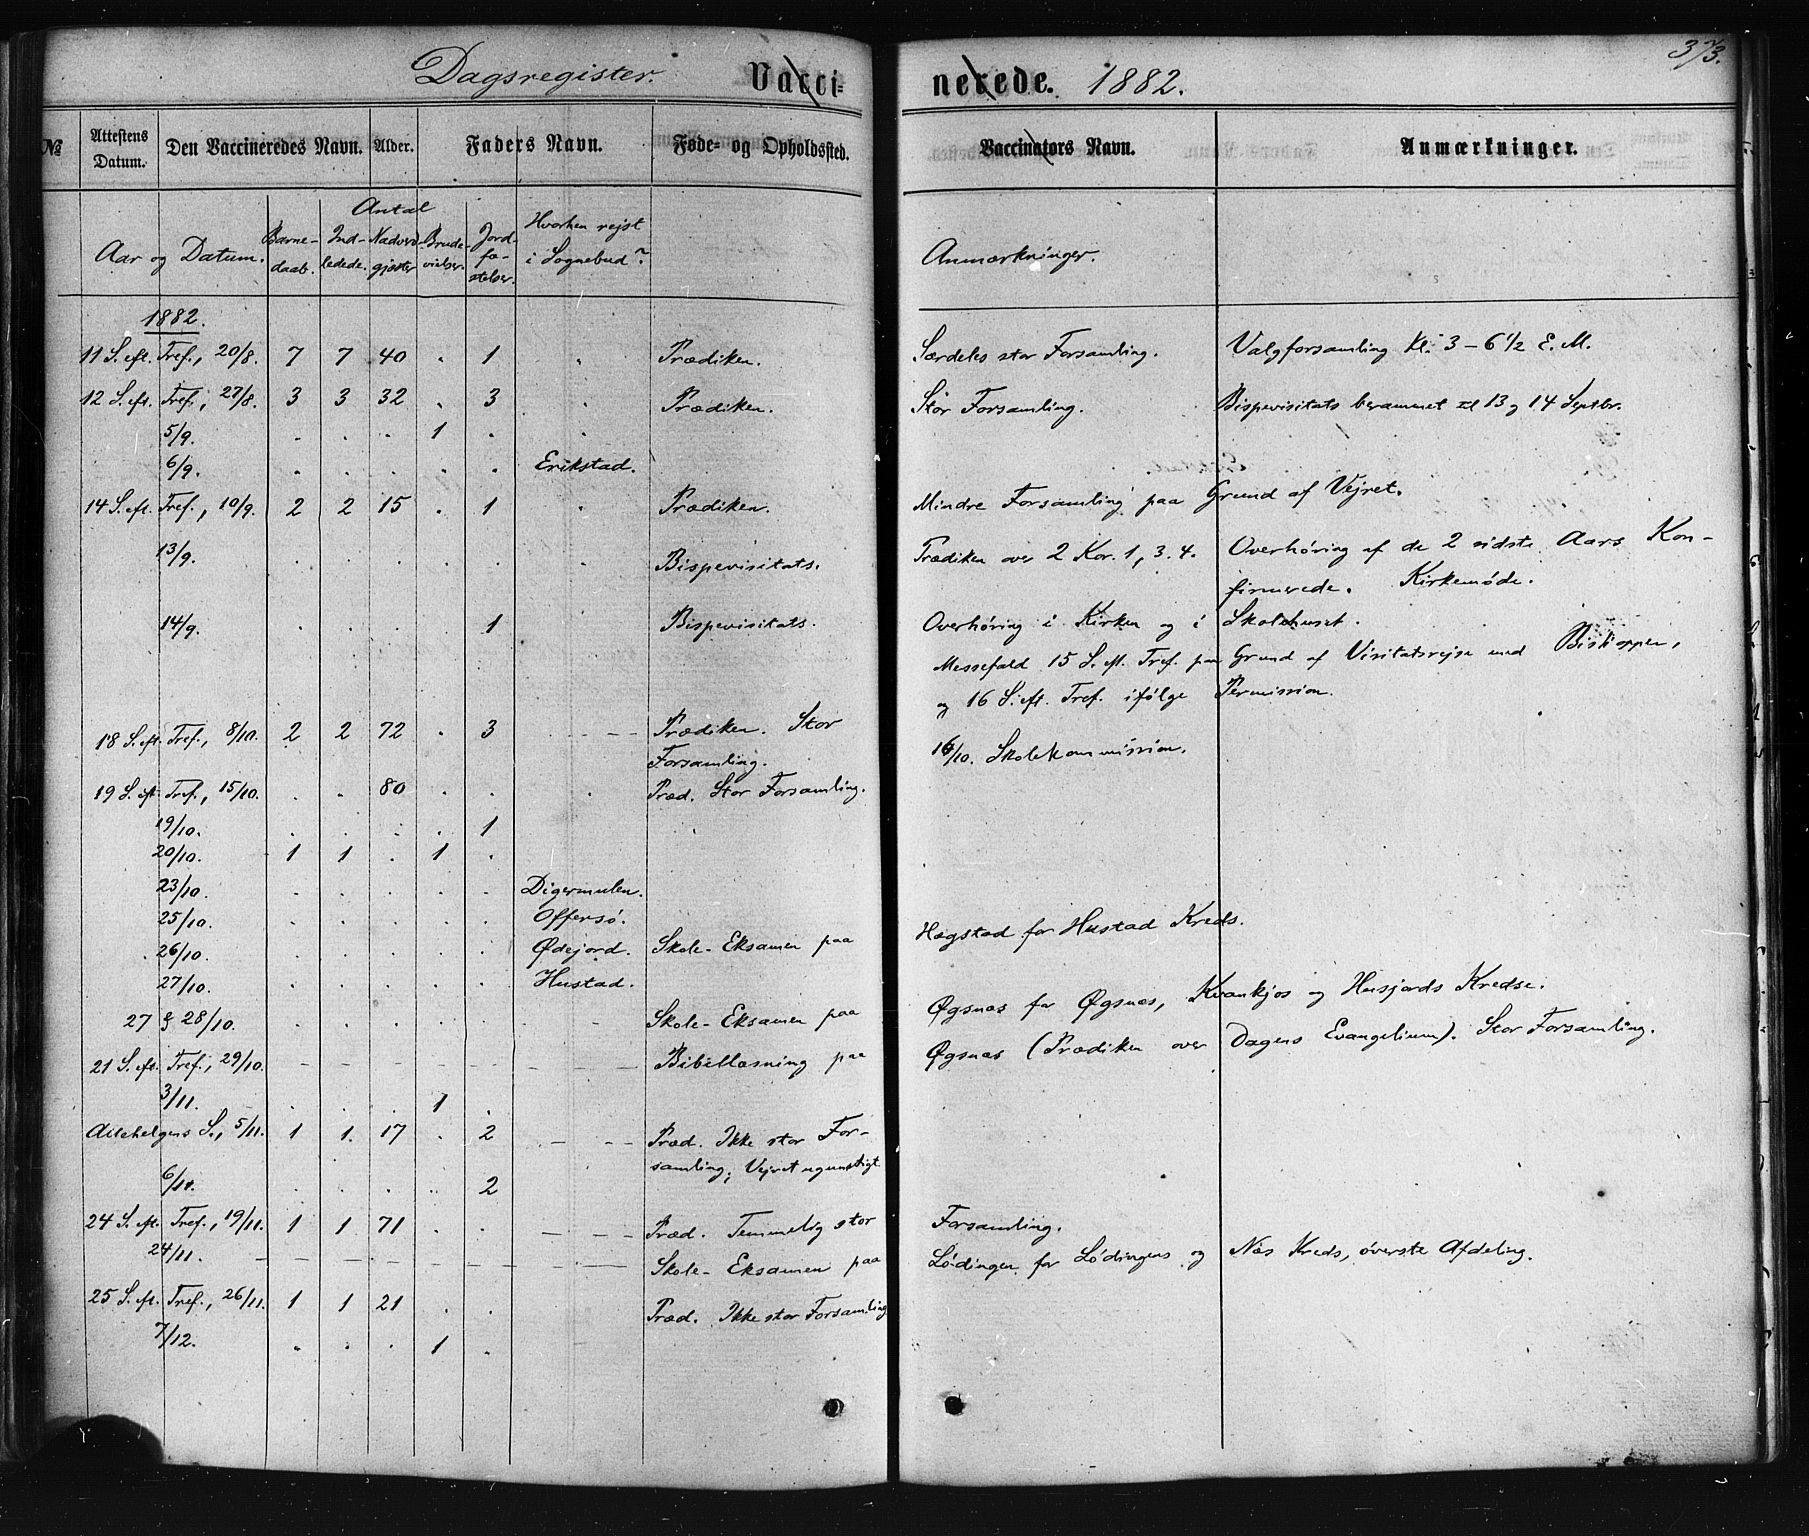 373.
Dagsregister. Vacci= nerede. 1882.
№ Attestens Datum. Den Vaccineredes Navn. Alder. Faders Navn. Føde- og Opholdssted. Vaccinators Navn. Anmærkninger.
Antal
Aar og Datum. Barne-daab. Ind-ledede. Nadverd-gjæster Brude-vielser. Jord-fæ-stelser. Hvorhen rejst i Sognebud? Anmærkninger.
1882.
11 S. eft. Tref., 20/8. 7 7 40 . 1 . Prædiken. Særdeles stor Forsamling. Valgforsamling Kl. 3 – 6 1/2 E. M.
12 S. eft. Tref., 27/8. 3 3 32 . 3 . Prædiken. Stor Forsamling. Bispevisitats berammet til 13 og 14 Septbr.
5/9. . . . 1 . .
6/9. . . . . . Erikstad.
14 S. eft. Tref., 10/9. 2 2 15 . 1 . Prædiken. Mindre Forsamling paa Grund af Vejret.
13/9. . . . . . . Bispevisitats. Prædiken over 2 Kor. 1, 3. 4. Overhøring af de 2 sidste Aars Kon-
firmerede. Kirkemøde.
14/9. . . . . 1 Bispevisitats. Overhøring i Kirken og i Skolehuset.
Messefald 15 S. eft. Tref. paa Grund af Visitatsrejse med Biskoppen,
og 16 S. eft. Tref. ifølge Permission.
18 S. eft. Tref., 8/10. 2 2 72 . 3 - - - Prædiken. Stor
Forsamling. 16/10. Skolekommission.
19 S. eft. Tref., 15/10. . . 80 . . . Præd. Stor Forsamling.
19/10. . . . . 1
20/10. 1 1 . 1 .
23/10. . . . . . Digermulen.
25/10. . . . . . Offersø.
26/10. . . . . . Ødejord. Skole-Eksamen paa Hægstad for Hustad Kreds.
27/10. . . . . . Hustad.
27 & 28/10. . . . . . - - Skole-Eksamen paa Øgsnæs for Øgsnæs, Kvankjos og Husjords Kredse.
21 S. eft. Tref., 29/10. - - - - - - Bibellæsning paa Øgsnæs (Prædiken over Dagens Evangelium). Stor Forsamling.
3/11. . . . 1 .
Allehelgens S., 5/11. 1 1. 17 . 2 - - - Præd. Ikke stor For-
samling; Vejret ugunstigt
6/11. . . . . 2
24 S. eft. Tref., 19/11. 1 1 71 . . - - - Præd. Temmelig stor Forsamling.
24/11. - - - - - - Skole-Eksamen paa Lødingen for Lødingens og Næs Kreds, øverste Afdeling.
25 S. eft. Tref., 26/11. 1 1 21 . . Præd. Ikke stor Forsamling
7/12. . . . 1 .